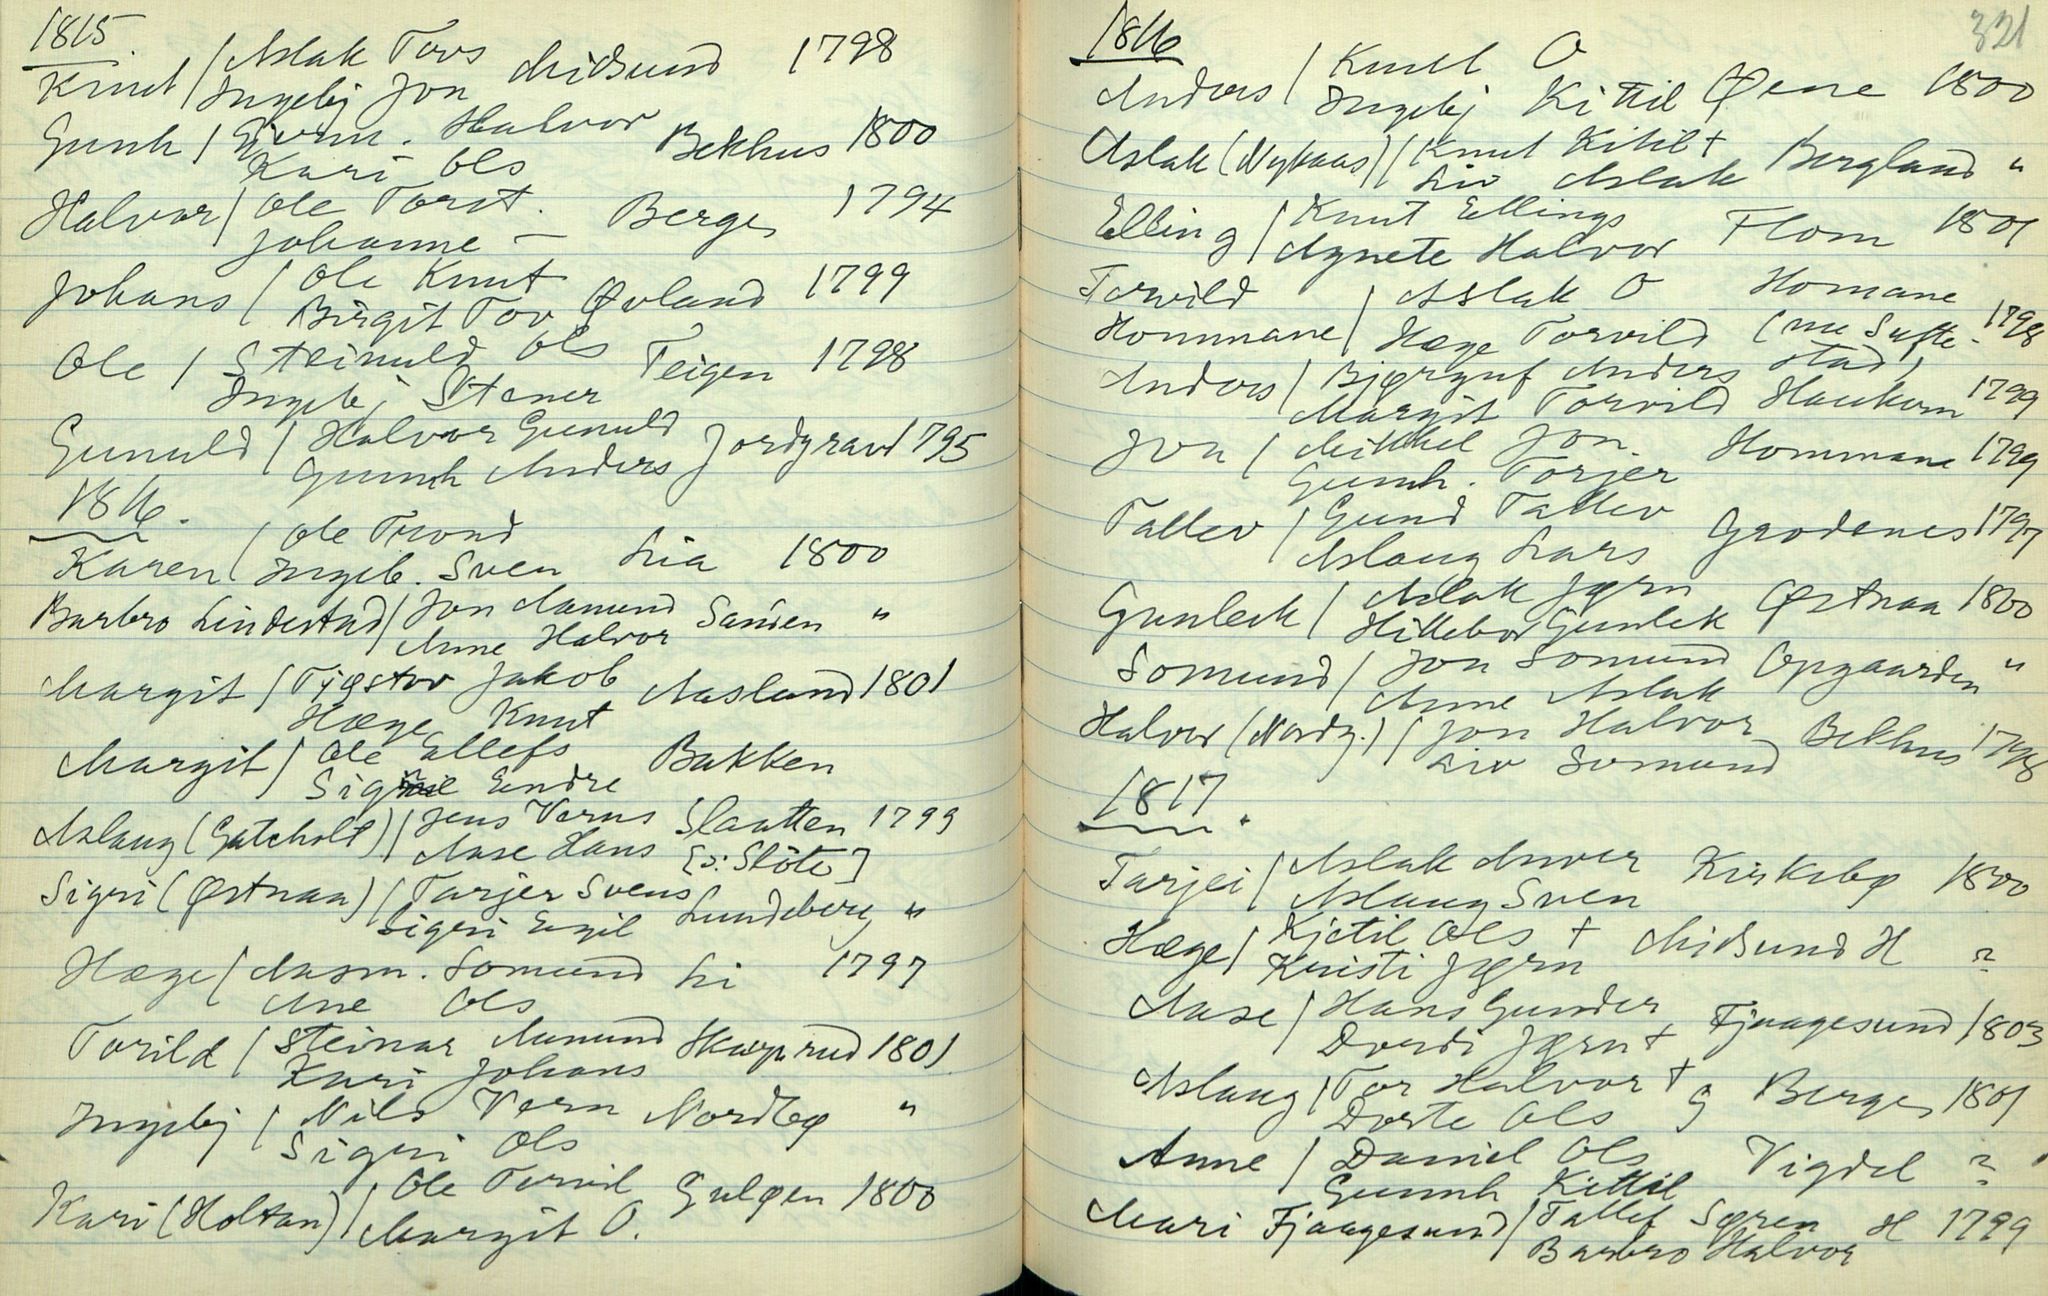 1815.
Knut / Aslak Tovs Midsund 1798
Ingebj Jon
Gunh / Gjerm. Halvor Bekhus 1800
Kari Ols
Halvor / Ole Torst. Berge 1794
Johanne —
Johans / Ole Knut Øvland 1799
Birgit Tov
Ole / Steinuld Ols Teigen 1798
Ingebj Stener
Gunuld / Halvor Gunuld Jordgrav 1795
Gunh Anders
1816.
Karen / Ole Trond Lia 1800
Ingeb. Sven
Barbro Lindestad / Jon Aamund Sanden "
Anne Halvor
Margit / Tjøstov Jakob Aasland 1801
Hæge Knut
Margit / Ole Ellefs Bakken
Signe Endre
Aslaug (Gatcholt) / Jens Verns Slaatten 1799
Aase Hans [ɔ: Slöte]
Sigri (Østnaa) / Tarjer Svens Lundeberg "
Sigri Engil
Hæge / Aasm. Somund Li 1797
Ane Ols
Torild / Steinar Aamund Skarprud 1801
Kari Johans
Ingebj / Nils Vern Nordbø "
Sigri Ols
Kari (Holtan) / Ole Torvil Guløen 1800
Margit O.
321
1816
Anders / Knut O Øene 1800
Ingebj Kittil
Aslak (Nykaas) / Knut Kitil + Bergland "
Liv Aslak
Elling / Knut Ellings Flom 1801
Agnete Halvor
Torvild / Aslak O Homane
Hommane / Hæge Torvild (nu Sufte- 1798
stad)
Anders / Bjørgulf Anders Haukom 1799
Margit Torvild
Jon / Mikkel Jon. Hommane 1799
Gunh. Torjer
Tallev / Gund Tallev Grodenes 1797
Aslaug Lars
Gunleik / Aslak Jørn Østnaa 1800
Hillebor Gunleik
Somund / Jon Somund Opgaarden "
Anne Aslak
Halvor (Nordg.) / Jon Halvor Bekhus 1798
Liv Somund
1817.
Tarjei / Aslak Anver Kirkebø 1800
Aslaug Sven
Hæge / Kjetil Ols + Midsund H ?
Kristi Jørn
Aase / Hans Gunder Fjaagesund 1803
Dordi Jørn +
Aslaug / Tor Halvor + G Berge 1801
Dorte Ols
Anne / Daniel Ols Vigdel ?
Gunnh Kittil
Mari Fjaagesund / Tallef Søren H 1799
Barbro Halvor